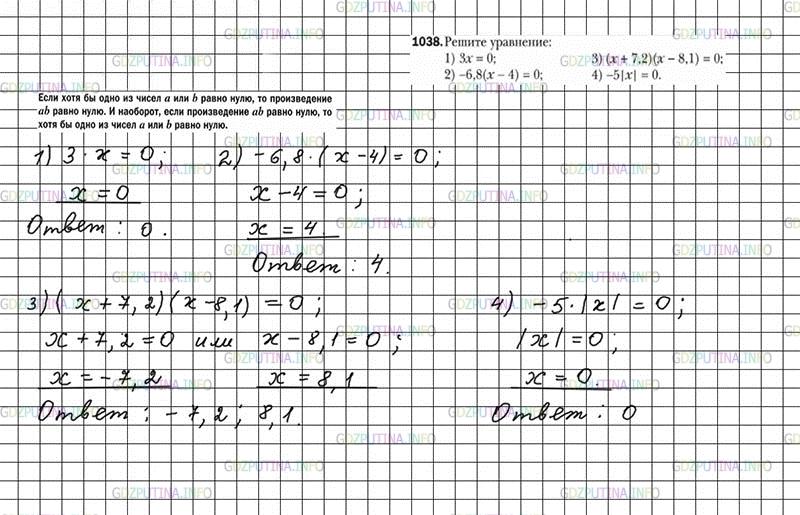 1038. Решите уравнение:
1) 3x = 0;
2) −6,8(x − 4) = 0;
3) (x + 7,2)(x − 8,1) = 0;
4) −5|x| = 0.
Если хотя бы одно из чисел a или b равно нулю, то произведение
ab равно нулю. И наоборот, если произведение ab равно нулю, то
хотя бы одно из чисел a или b равно нулю.
1) 3 · x = 0;
x = 0
Ответ: 0.
2) −6,8 · (x − 4) = 0;
x − 4 = 0;
x = 4.
Ответ: 4.
3) (x + 7,2)(x − 8,1) = 0;
x + 7,2 = 0 или x − 8,1 = 0;
x = −7,2 x = 8,1
Ответ: −7,2; 8,1.
4) −5 · |x| = 0;
|x| = 0;
x = 0.
Ответ: 0
GDZPUTINA.INFO